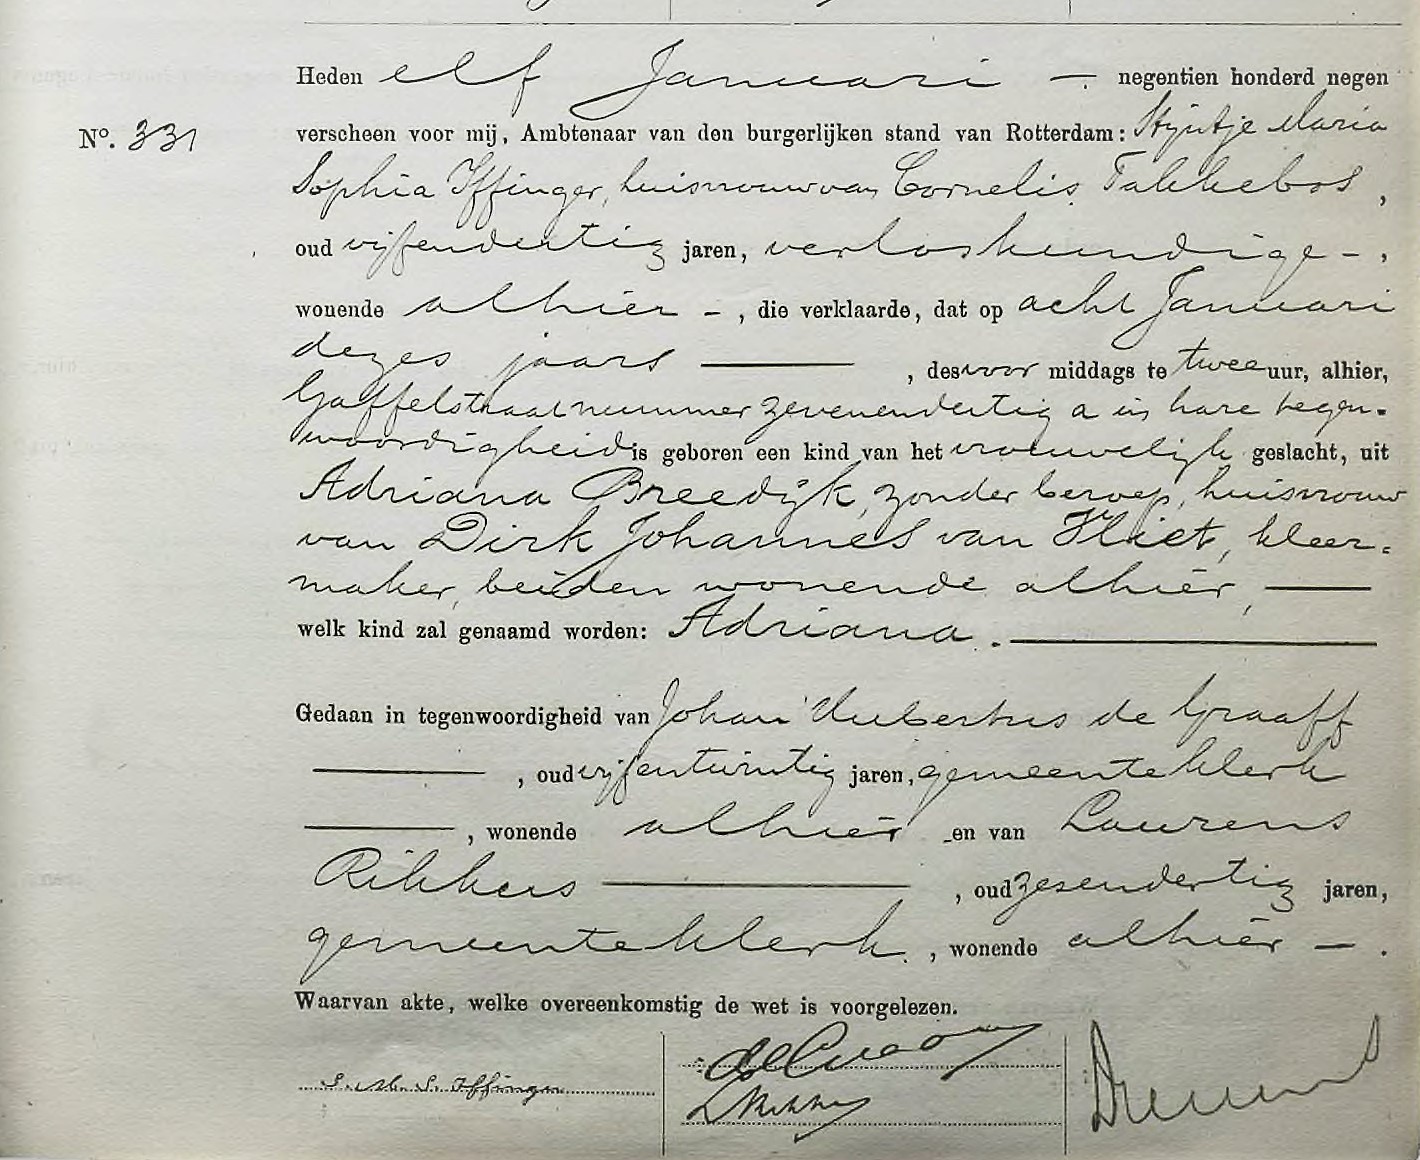 Heden elf Januari — negentien honderd negen
No. 331
verscheen voor mij, Ambtenaar van den burgerlijken stand van Rotterdam: Stijntje Maria
Sophia Iffinger, huisvrouw van Cornelis Takkebos,
oud vijfendertig jaren, verloskundige - ,
wonende alhier - , die verklaarde, dat op acht Januari
dezes jaars — , des voor middags te twee uur, alhier,
Gaffelstraat nummer zevenendertig a in hare tegen-
woordigheid is geboren een kind van het vrouwelijk geslacht, uit
Adriana Breedijk, zonder beroep, huisvrouw
van Dirk Johannes van Vliet, kleer-
maker, beiden wonende alhier, —
welk kind zal genaamd worden: Adriana. —
Gedaan in tegenwoordigheid van Johan Hubertus de Graaff
— , oud vijfentwintig jaren, gemeenteklerk
— , wonende alhier en van Laurens
Rikkers — , oud zesendertig jaren,
gemeenteklerk , wonende alhier — .
Waarvan akte, welke overeenkomstig de wet is voorgelezen.
S. M. S. Iffinger
de Graaff
L Rikkers